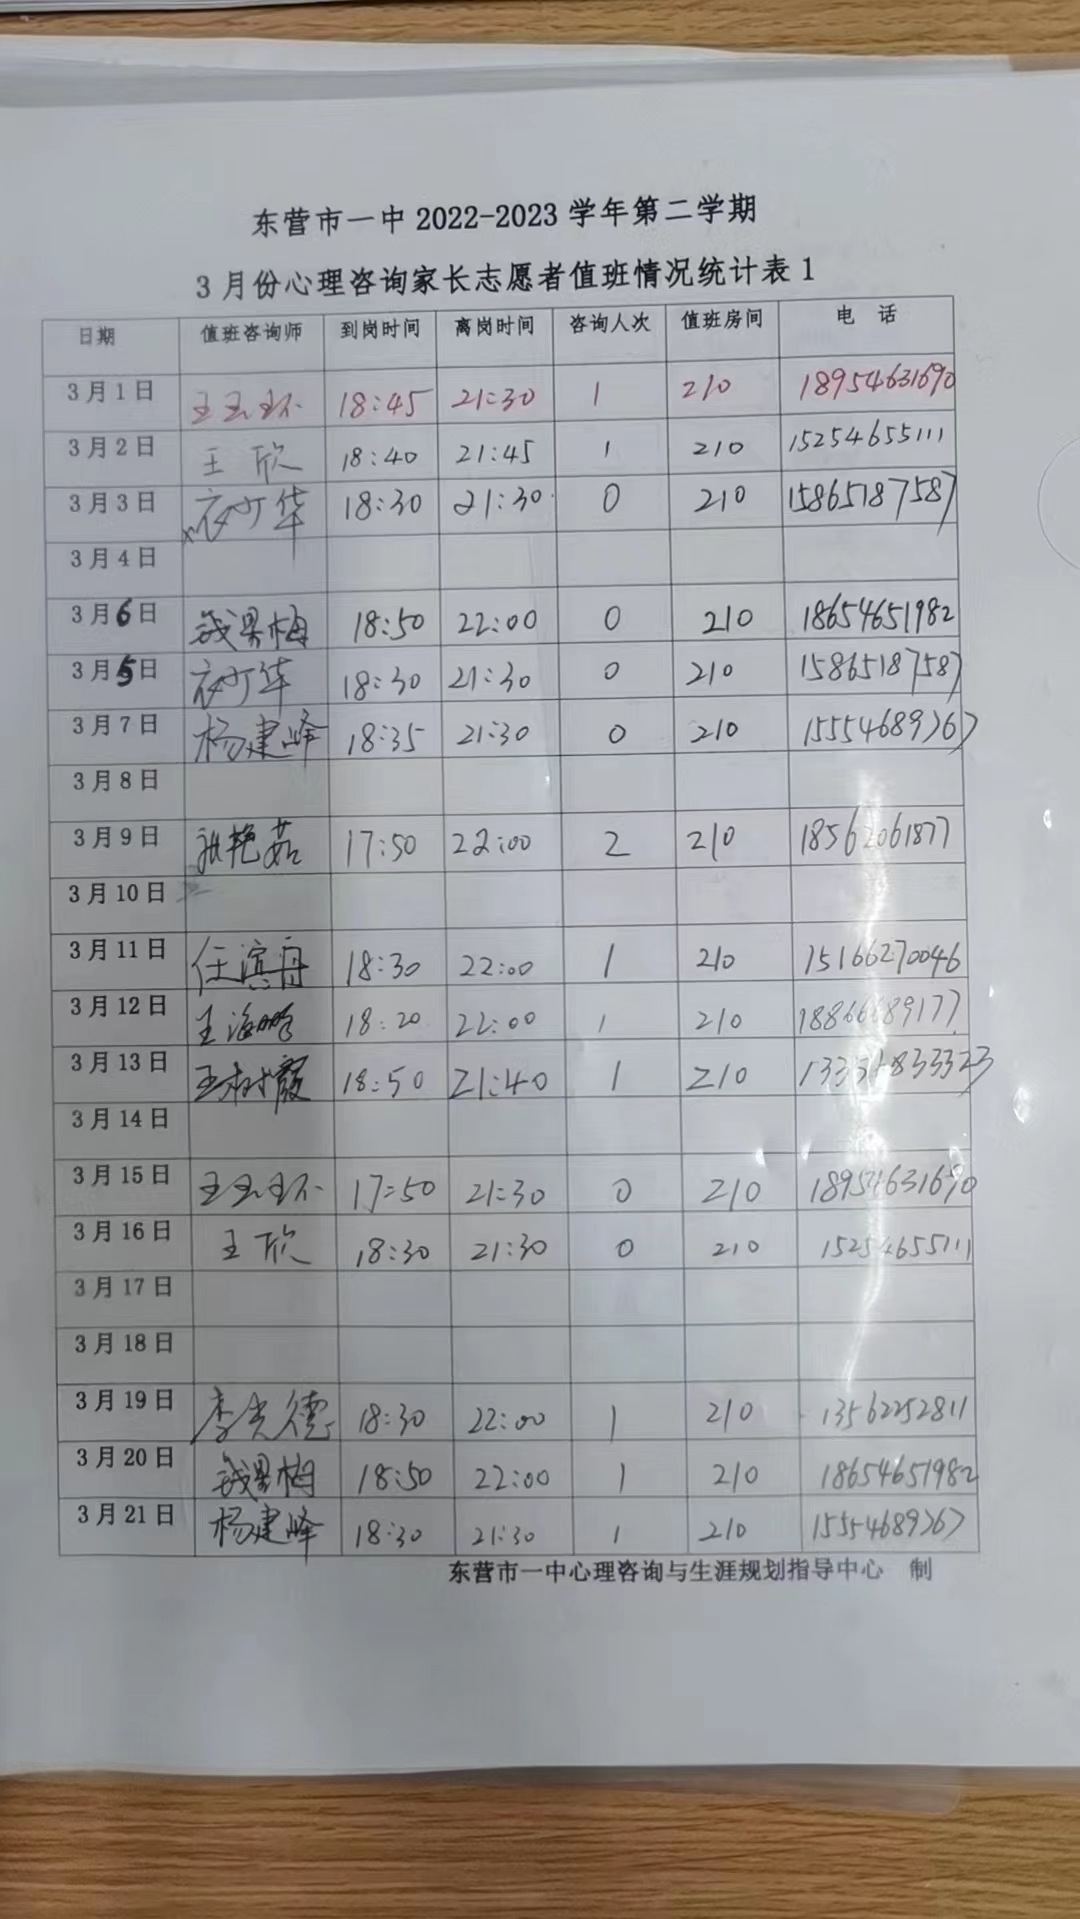 东营市一中 2022-2023 学年第二学期
3 月份心理咨询家长志愿者值班情况统计表 1
日期 值班咨询师 到岗时间 离岗时间 咨询人次 值班房间 电 话
3月1日 王玉环 18:45 21:30 1 210 18954631690
3月2日 王欣 18:40 21:45 1 210 15254655111
3月3日 18:30 21:30 0 210 15865187587
3月4日
3月6日 钱果梅 18:50 22:00 0 210 18654651982
3月5日 18:30 21:30 0 210 15865187587
3月7日 杨建峰 18:35 21:30 0 210 15554689767
3月8日
3月9日 张艳茹 17:50 22:00 2 210 18562061877
3月10日
3月11日 任滨舟 18:30 22:00 1 210 15166270046
3月12日 王海鹏 18:20 22:00 1 210 18866689177
3月13日 王树霞 18:50 21:40 1 210
3月14日
3月15日 王玉环 17:50 21:30 0 210 18954631690
3月16日 王欣 18:30 21:30 0 210 15254655111
3月17日
3月18日
3月19日 李光德 18:30 22:00 1 210 13562252811
3月20日 钱果梅 18:50 22:00 1 210 18654651982
3月21日 杨建峰 18:30 21:30 1 210 15554689767
东营市一中心理咨询与生涯规划指导中心 制